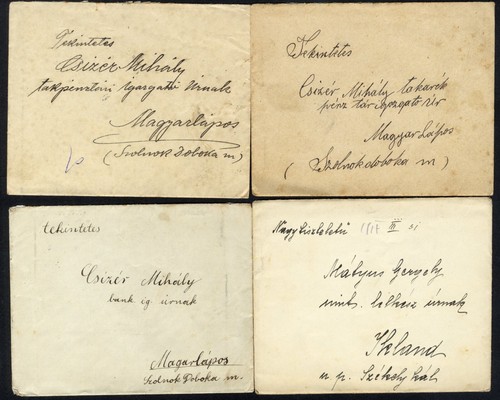 Tekintetes
Csizér Mihály
takpénztári Igazgató Úrnak
Magyarlápos
(Szolnok Doboka m)
Tekintetes
Csizér Mihály takarék
pénz tár igazgató Úr
Magyar Lápos
(Szolnokdoboka m)
tekintetes
Csizér Mihály
bank ig. úrnak
Magarlápos
Szolnok Doboka m.
Nagytiszteletű III 31
Mátyus Gergely
unit. lelkész úrnak
Ikland
u. p. Székely kál